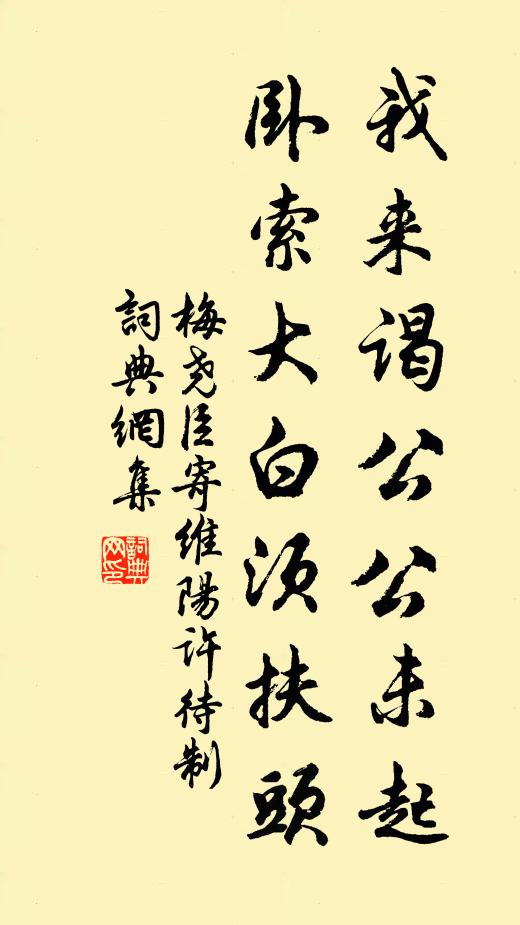 我来谒公公未起
卧索大白须扶頭
梅尧臣寄维陽許待制
詞典網集
詞典網印